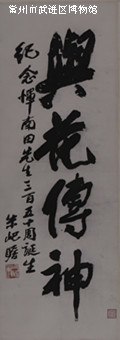 常州市武进区博物馆
與花傳神
纪念惲南田先生三百五十周誕生
朱屺瞻